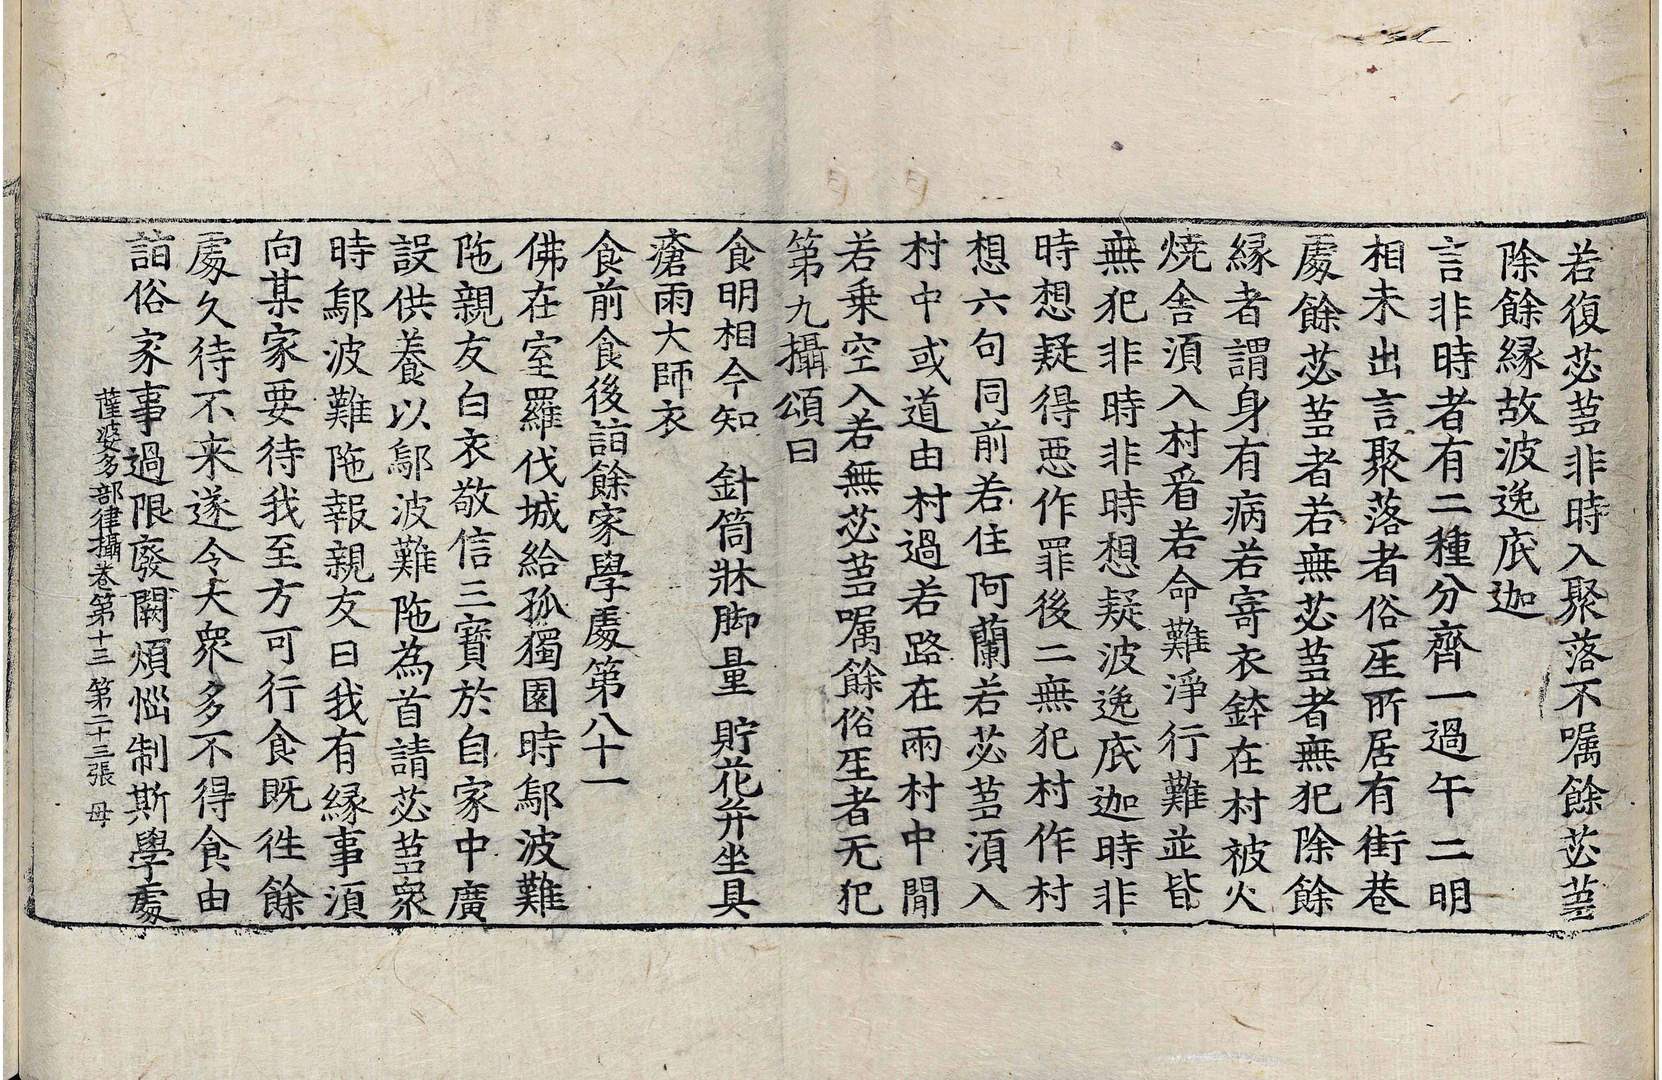 若復苾芻非時入聚落不嘱餘苾芻
除餘縁故波逸底迦
言非時者有二種分齊一過午二明
相未出言聚落者俗𤯔所居有街巷
處餘苾芻者若無苾芻者無犯除餘
縁者謂身有病若寄衣鉢在村被火
燒舍湏入村㸔若命難淨行難並皆
無犯非時非時想疑波逸底迦時非
時想疑得悪作罪後二無犯村作村
想六句同前若住阿蘭若苾芻湏入
村中或道由村過若路在兩村中閒
若乗空入若無苾芻嘱餘俗𤯔者无犯
第九攝頌曰
食明相今知 針筒牀脚量 貯花并坐具
瘡雨大師衣
食前食後詣餘家學處第八十一
佛在室羅伐城給孤獨園時鄔波難
陁親友白衣敬信三寳於自家中廣
設供養以鄔波難陁為首請苾芻衆
時鄔波難陁報親友曰我有縁事湏
向某家要待我至方可行食既徃餘
處久待不来遂令大衆多不得食由
詣俗家事過限廢闕煩惱制斯學處
薩婆多部律攝卷第十三 第二十三張 母